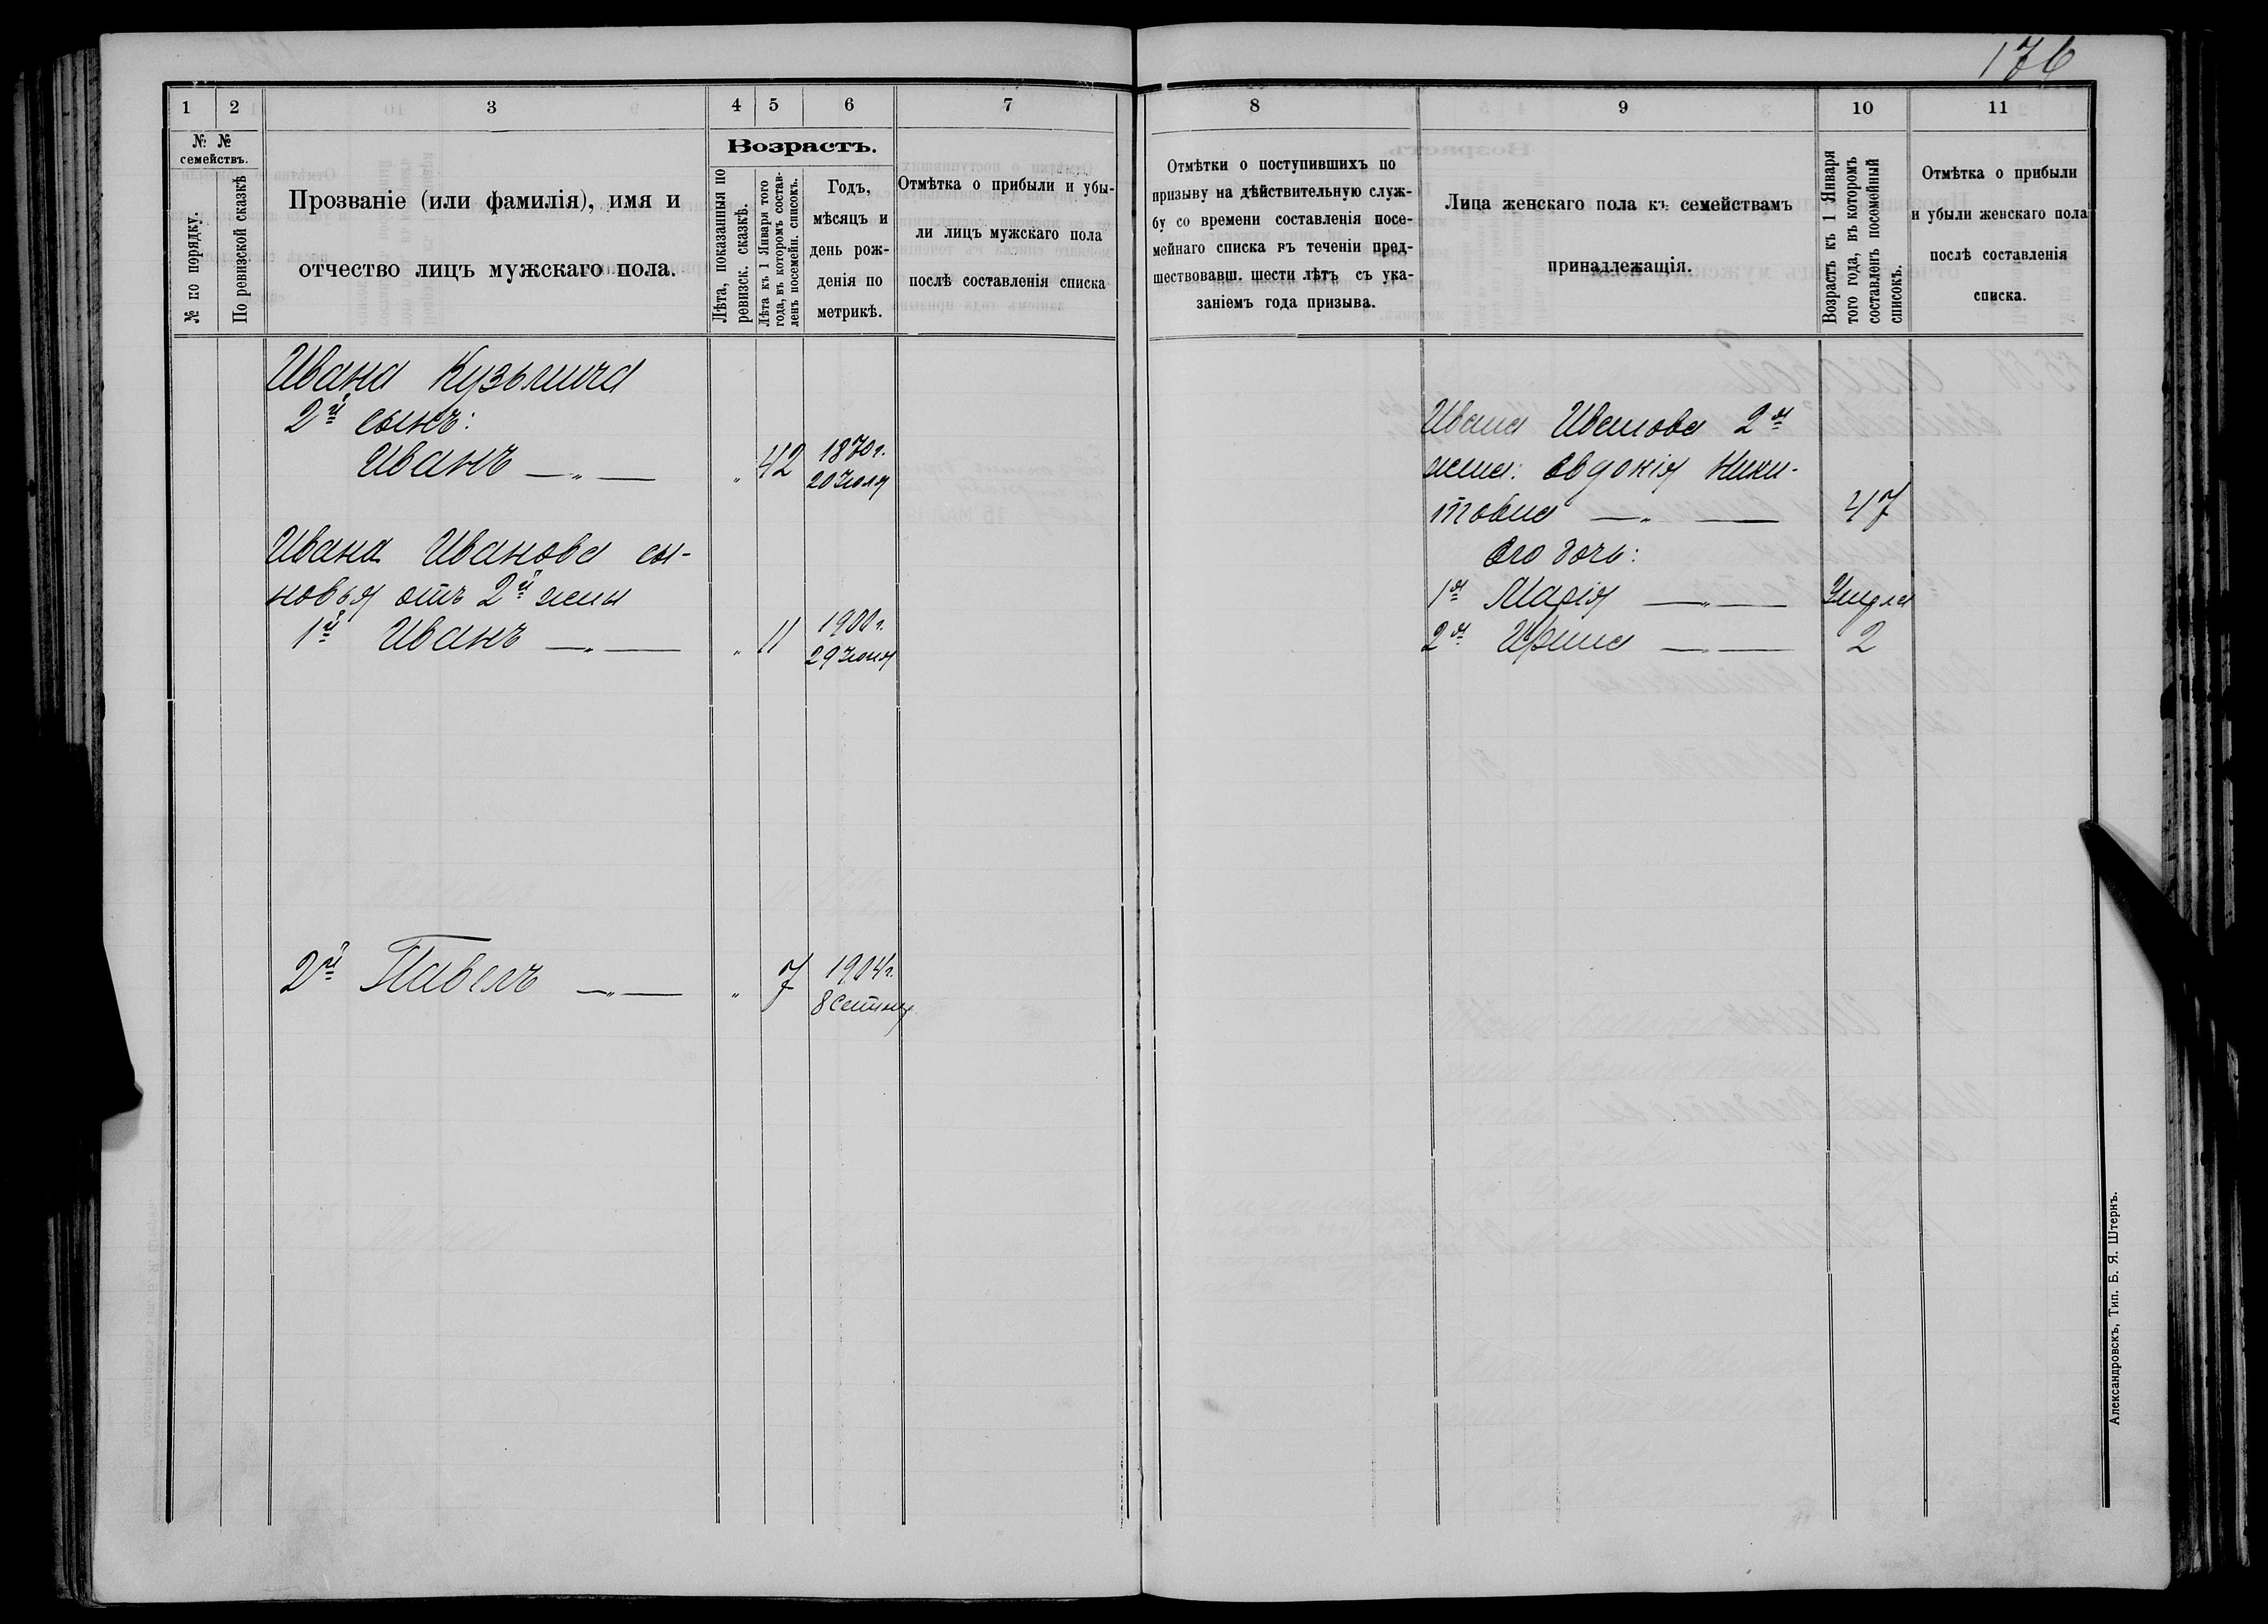 176
1 2 3 4 5 6 7 8 9 10 11
№ №
семействъ.
№ по порядку.
По ревизской сказкѣ
Прозваніе (или фамилія), имя и
отчество лицъ мужскаго пола.
Возрастъ.
Лѣта, показанныя по
ревизск. сказкѣ.
Лѣта къ 1 Января того
года, въ которомъ состав-
ленъ посемейн. списокъ.
Годъ,
мѣсяцъ и
день рож-
денія по
метрикѣ.
Отмѣтка о прибыли и убы-
ли лицъ мужскаго пола
послѣ составленія списка
Отмѣтки о поступившихъ по
призыву на дѣйствительную служ-
бу со времени составленія посе-
мейнаго списка въ теченіи пред-
шествовавш. шести лѣтъ съ ука-
заніемъ года призыва.
Лица женскаго пола къ семействамъ
принадлежащія.
Возрастъ къ 1 Января
того года, въ которомъ
составленъ посемейный
списокъ.
Отмѣтка о прибыли
и убыли женскаго пола
послѣ составленія
списка.
Ивана Кузьмича
2й сынъ:
Иванъ —„— „ 42 1870 г.
20 Июля
Ивана Иванова сы-
новья отъ 2й жены
1й Иванъ —„— „ 11 1900 г.
29 Июня
2й Павелъ —„— „ 7 1904 г.
8 Сентяб
Ивана Иванова 2я
жена: Евдокія Ники-
товна —„— 47
Его дочь:
1я Марія —„— Умерла
2я Ирина —„— 2
Александровскъ, Тип. Б. Я. Штернъ.